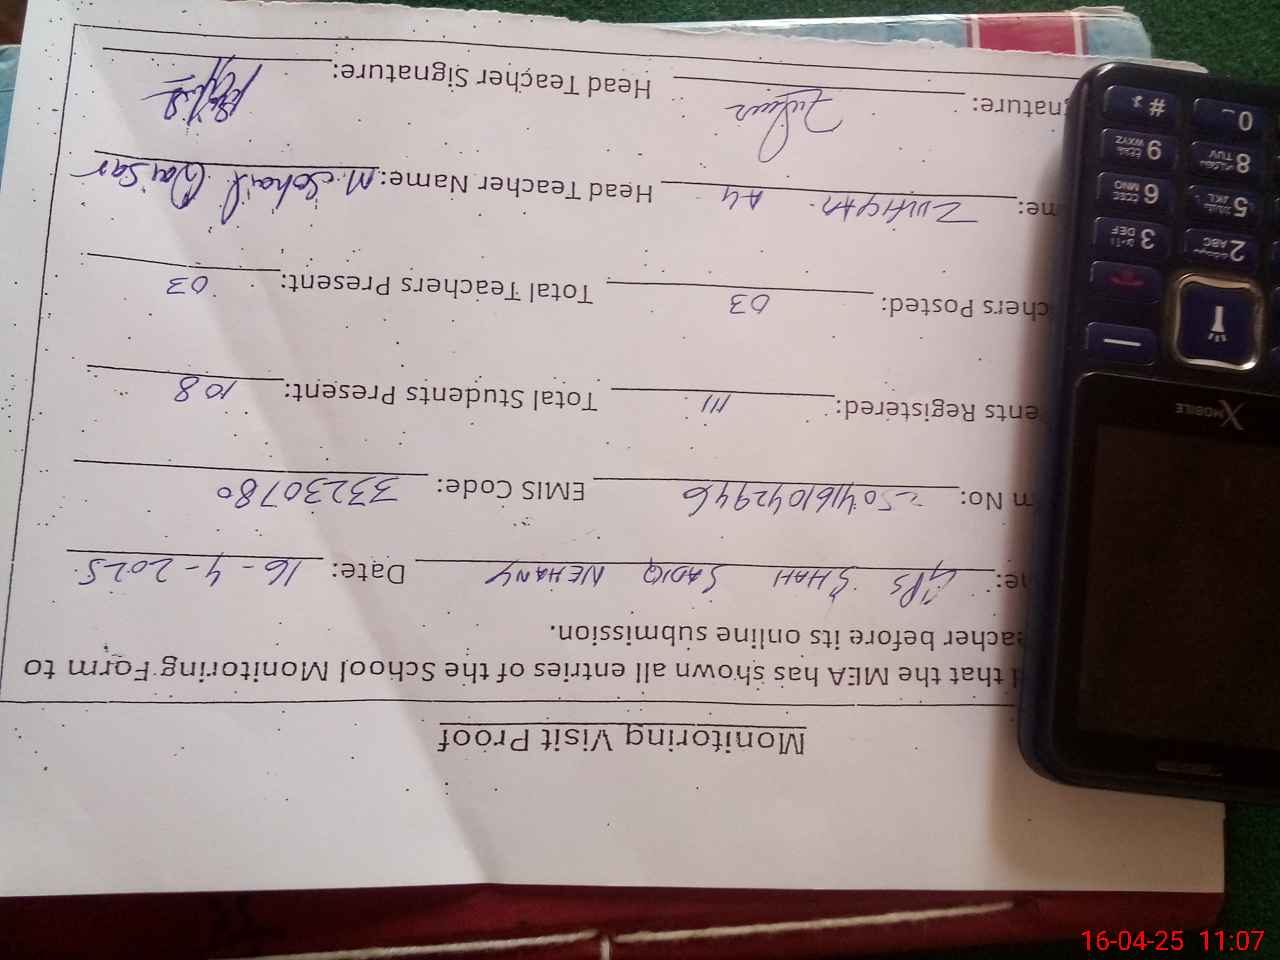 Monitoring Visit Proof
that the MEA has shown all entries of the School Monitoring Form to
eacher before its online submission.
ne: GPS SHAH SADIQ NEHANG Date: 16-4-2025
m No: 250416104294946 EMIS Code: 33230780
ents Registered: 111 Total Students Present: 108
chers Posted: 03 Total Teachers Present: 03
me: ZULFIQAR Head Teacher Name: M. Sohail Qaisar
gnature: Head Teacher Signature:
X MOBILE
2 ABC
3 DEF
5 JKL
6 MNO
8 TUV
9 WXYZ
0
#
16-04-25 11:07